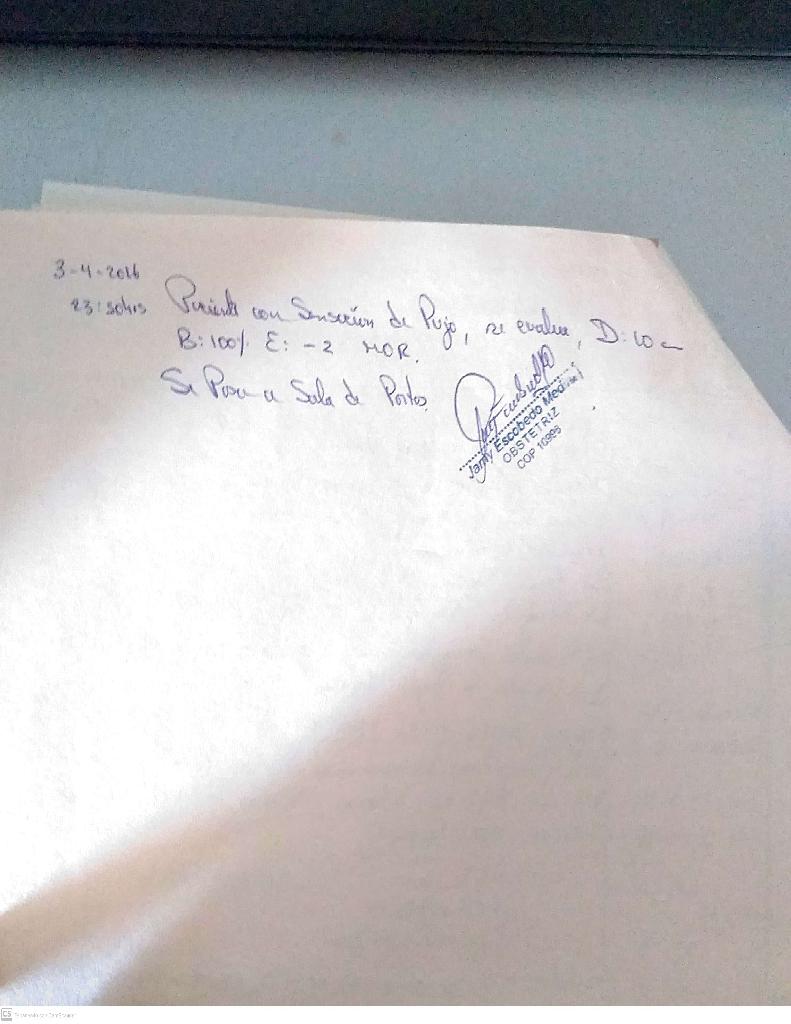 3-4-2016
23:50hrs Paciente con Sensación de Pujo, se evalua, D: 10 cm
B: 100% E: -2 MOR.
Se Pasa a Sala de Partos.
Jamy Escobedo Medina
OBSTETRIZ
COP 10995
CS